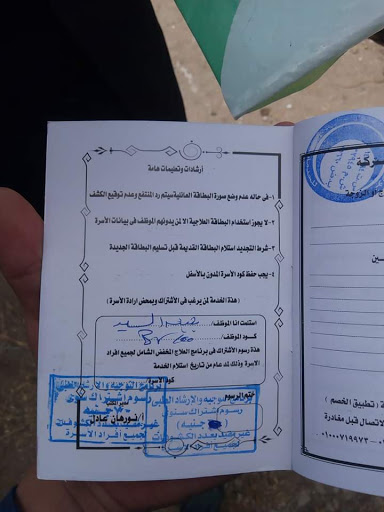 أرشادات وتعليمات هامة
١-في حاله عدم وضع صورة البطاقة العائلية سيتم رد المنتفع وعدم توقيع الكشف
٢-لا يجوز استخدام البطاقة العلاجية الا لمن يدونهم الموظف في بيانات الأسرة
٣-شرط التجديد استلام البطاقة القديمة قبل تسليم البطاقة الجديدة
٤-يجب حفظ كود الأسرة المدون بالأسفل
(هذة الخدمة لمن يرغب في الأشتراك وبمحض ارادة الأسرة)
استلمت انا الموظف/
كود الموظف/
هذة رسوم الأشتراك في برنامج العلاج المخفض الشامل لجميع أفراد
الاسرة وذلك لمدة عام من تاريخ أستلام الخدمة
كود الأسرة
ختم الرسوم
التوجيه والإرشاد الطبى
رسوم اشتراك سنوى
جنيه
غير محدد بعدد الكشوفات
لجميع أفراد الأسرة
أ/نورهان عادل
(تطبيق الخصم)
الاتصال قبل مغادرة
٠١٠٠٠٧١٩٩٧٣